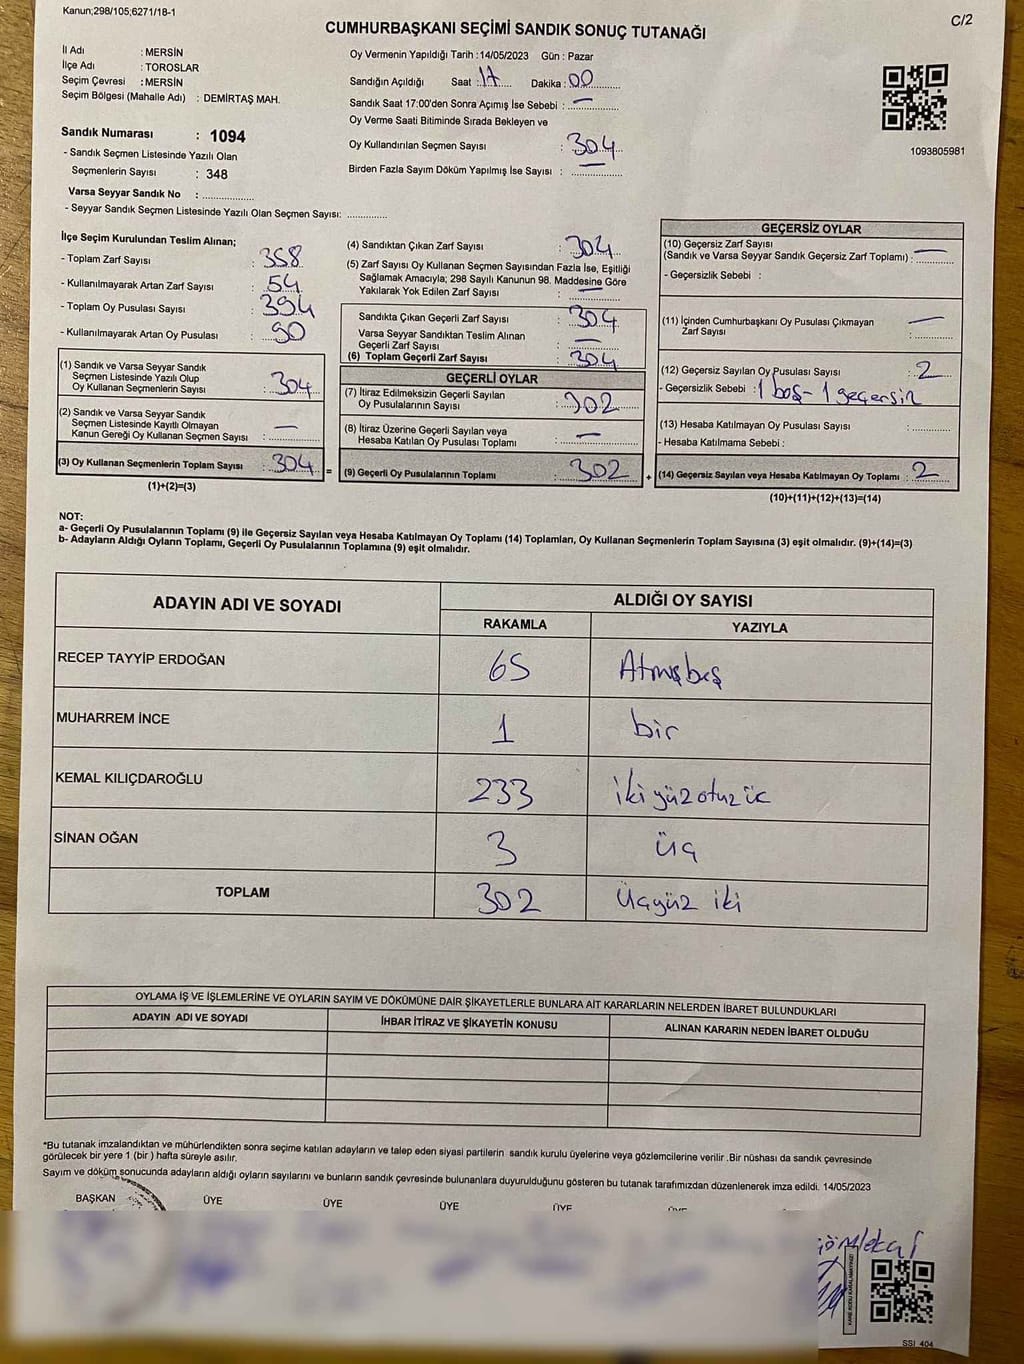 Kanun;298/105;6271/18-1
C/2
CUMHURBAŞKANI SEÇİMİ SANDIK SONUÇ TUTANAĞI
İl Adı : MERSİN
İlçe Adı : TOROSLAR
Seçim Çevresi : MERSİN
Seçim Bölgesi (Mahalle Adı) : DEMİRTAŞ MAH.
Sandık Numarası : 1094
- Sandık Seçmen Listesinde Yazılı Olan
Seçmenlerin Sayısı : 348
Varsa Seyyar Sandık No : ..................
- Seyyar Sandık Seçmen Listesinde Yazılı Olan Seçmen Sayısı: ..............
Oy Vermenin Yapıldığı Tarih : 14/05/2023 Gün : Pazar
Sandığın Açıldığı Saat : 17 Dakika : 00
Sandık Saat 17:00'den Sonra Açımış İse Sebebi : —
Oy Verme Saati Bitiminde Sırada Bekleyen ve
Oy Kullandırılan Seçmen Sayısı : 304
Birden Fazla Sayım Döküm Yapılmış İse Sayısı : —
1093805981
İlçe Seçim Kurulundan Teslim Alınan;
- Toplam Zarf Sayısı : 358
- Kullanılmayarak Artan Zarf Sayısı : 54
- Toplam Oy Pusulası Sayısı : 394
- Kullanılmayarak Artan Oy Pusulası : 90
(1) Sandık ve Varsa Seyyar Sandık
Seçmen Listesinde Yazılı Olup
Oy Kullanan Seçmenlerin Sayısı : 304
(2) Sandık ve Varsa Seyyar Sandık
Seçmen Listesinde Kayıtlı Olmayan
Kanun Gereği Oy Kullanan Seçmen Sayısı : —
(3) Oy Kullanan Seçmenlerin Toplam Sayısı : 304 =
(1)+(2)=(3)
(4) Sandıktan Çıkan Zarf Sayısı : 304
(5) Zarf Sayısı Oy Kullanan Seçmen Sayısından Fazla İse, Eşitliği
Sağlamak Amacıyla; 298 Sayılı Kanunun 98. Maddesine Göre
Yakılarak Yok Edilen Zarf Sayısı : —
Sandıkta Çıkan Geçerli Zarf Sayısı : 304
Varsa Seyyar Sandıktan Teslim Alınan
Geçerli Zarf Sayısı : —
(6) Toplam Geçerli Zarf Sayısı : 304
GEÇERLİ OYLAR
(7) İtiraz Edilmeksizin Geçerli Sayılan
Oy Pusulalarının Sayısı : 302
(8) İtiraz Üzerine Geçerli Sayılan veya
Hesaba Katılan Oy Pusulası Toplamı : —
(9) Geçerli Oy Pusulalarının Toplamı : 302 +
GEÇERSİZ OYLAR
(10) Geçersiz Zarf Sayısı
(Sandık ve Varsa Seyyar Sandık Geçersiz Zarf Toplamı) : —
- Geçersizlik Sebebi :
(11) İçinden Cumhurbaşkanı Oy Pusulası Çıkmayan
Zarf Sayısı : —
(12) Geçersiz Sayılan Oy Pusulası Sayısı : 2
- Geçersizlik Sebebi : 1 boş - 1 geçersiz
(13) Hesaba Katılmayan Oy Pusulası Sayısı : ..........
- Hesaba Katılmama Sebebi :
(14) Geçersiz Sayılan veya Hesaba Katılmayan Oy Toplamı : 2
(10)+(11)+(12)+(13)=(14)
NOT:
a- Geçerli Oy Pusulalarının Toplamı (9) ile Geçersiz Sayılan veya Hesaba Katılmayan Oy Toplamı (14) Toplamları, Oy Kullanan Seçmenlerin Toplam Sayısına (3) eşit olmalıdır. (9)+(14)=(3)
b- Adayların Aldığı Oyların Toplamı, Geçerli Oy Pusulalarının Toplamına (9) eşit olmalıdır.
ADAYIN ADI VE SOYADI ALDIĞI OY SAYISI
RAKAMLA YAZIYLA
RECEP TAYYİP ERDOĞAN 65 Atmışbeş
MUHARREM İNCE 1 bir
KEMAL KILIÇDAROĞLU 233 ikiyüzotuzüç
SİNAN OĞAN 3 üç
TOPLAM 302 Üçyüz iki
OYLAMA İŞ VE İŞLEMLERİNE VE OYLARIN SAYIM VE DÖKÜMÜNE DAİR ŞİKAYETLERLE BUNLARA AİT KARARLARIN NELERDEN İBARET BULUNDUKLARI
ADAYIN ADI VE SOYADI İHBAR İTİRAZ VE ŞİKAYETİN KONUSU ALINAN KARARIN NEDEN İBARET OLDUĞU
*Bu tutanak imzalandıktan ve mühürlendikten sonra seçime katılan adayların ve talep eden siyasi partilerin sandık kurulu üyelerine veya gözlemcilerine verilir .Bir nüshası da sandık çevresinde
görülecek bir yere 1 (bir ) hafta süreyle asılır.
Sayım ve döküm sonucunda adayların aldığı oyların sayılarını ve bunların sandık çevresinde bulunanlara duyurulduğunu gösteren bu tutanak tarafımızdan düzenlenerek imza edildi. 14/05/2023
BAŞKAN ÜYE ÜYE ÜYE ÜYE ÜYE
KARE KODU KARALAMAYINIZ!
SSI 404